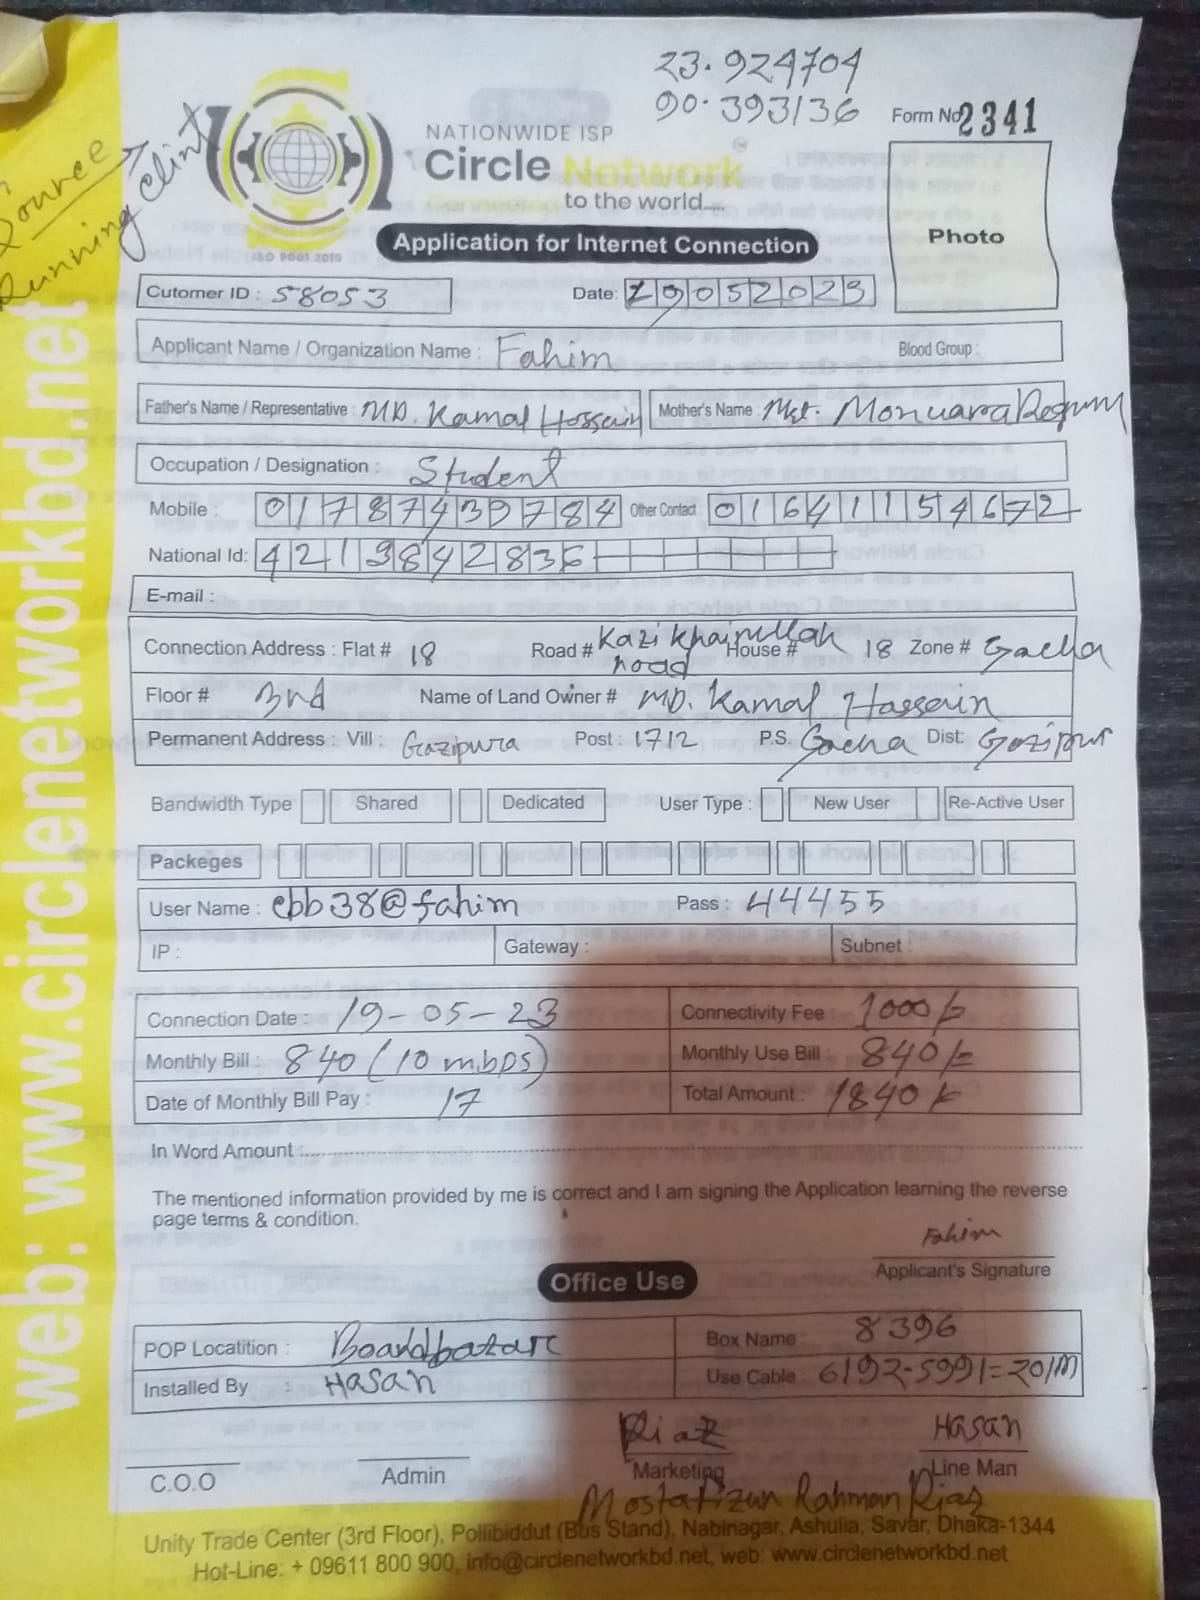 23.924704
90.393136
Form No 2341
Source → Running Clint
NATIONWIDE ISP
Circle Network
to the world....
ISO 9001:2015
Application for Internet Connection
Photo
Cutomer ID : 58053 Date: 19052023
Applicant Name / Organization Name : Fahim Blood Group :
Father's Name / Representative : MD. Kamal Hossain Mother's Name : Mst. Monuara Begum
Occupation / Designation : Student
Mobile : 01787439784 Other Contact : 01641154672
National Id: 4213842836
E-mail :
Connection Address : Flat # 18 Road # Kazi khairullah road House # 18 Zone # Gacha
Floor # 3rd Name of Land Owner # MD. Kamal Hassain
Permanent Address : Vill : Gazipura Post : 1712 P.S. Gacha Dist: Gazipur
Bandwidth Type Shared Dedicated User Type : New User Re-Active User
Packeges
User Name : ebb38@fahim Pass : 44455
IP : Gateway : Subnet :
Connection Date : 19-05-23 Connectivity Fee : 1000/=
Monthly Bill : 840 (10 mbps) Monthly Use Bill : 840/=
Date of Monthly Bill Pay : 17 Total Amount : 1840/=
In Word Amount :
The mentioned information provided by me is correct and I am signing the Application learning the reverse
page terms & condition.
Fahim
Applicant's Signature
Office Use
POP Locatition : Boardbazar Box Name : 8396
Installed By : Hasan Use Cable : 6192-5991=201M
Riaz Hasan
C.O.O Admin Marketing Line Man
Mostafizur Rahman Riaz
Unity Trade Center (3rd Floor), Pollibiddut (Bus Stand), Nabinagar, Ashulia, Savar, Dhaka-1344
Hot-Line: + 09611 800 900, info@circlenetworkbd.net, web: www.circlenetworkbd.net
web: www.circlenetworkbd.net